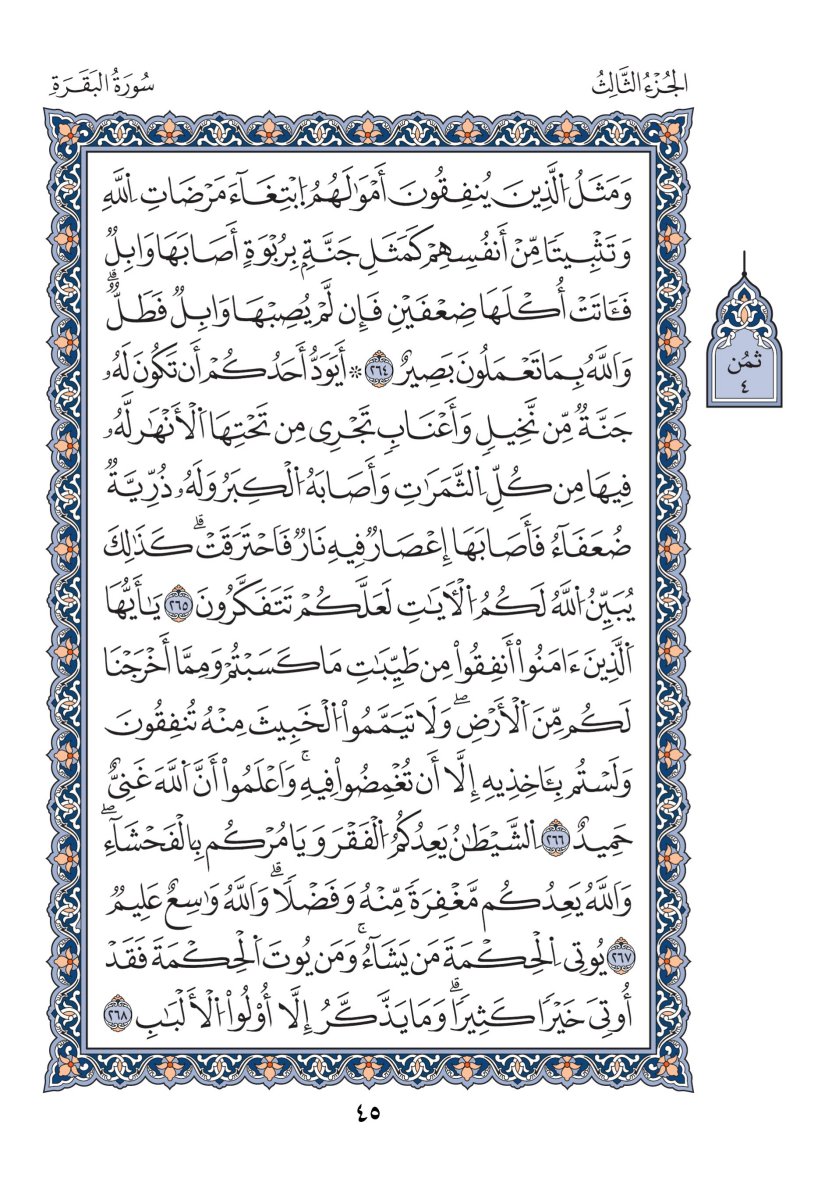 الجُزْءُ الثَّالِثُ
سُورَةُ البَقَرَةِ
وَمَثَلُ اُ۬لذِينَ يُنفِقُونَ أَمْوَٰلَهُمُ اُ۪بْتِغَآءَ مَرْضَاتِ اِ۬للَّهِ
وَتَثْبِيتاٗ مِّنْ أَنفُسِهِمْ كَمَثَلِ جَنَّةِۢ بِرُبْوَةٍ أَصَابَهَا وَابِلٞ
فَـَٔاتَتْ أُكْلَهَا ضِعْفَيْنِ فَإِن لَّمْ يُصِبْهَا وَابِلٞ فَطَلّٞۗ
وَاَللَّهُ بِمَا تَعْمَلُونَ بَصِيرٌ ٢٦٤ ۞ أَيَوَدُّ أَحَدُكُمْ أَن تَكُونَ لَهُۥ
جَنَّةٞ مِّن نَّخِيلٖ وَأَعْنَابٖ تَجْرِى مِن تَحْتِهَا اَ۬لْأَنْهَٰرُ لَهُۥ
فِيهَا مِن كُلِّ اِ۬لثَّمَرَٰتِ وَأَصَابَهُ اُ۬لْكِبَرُ وَلَهُۥ ذُرِّيَّةٞ
ضُعَفَآءُ فَأَصَابَهَا إِعْصَارٞ فِيهِ نَارٞ فَاحْتَرَقَتْۗ كَذَٰلِكَ
يُبَيِّنُ اُ۬للَّهُ لَكُمُ اُ۬لْأٓيَٰتِ لَعَلَّكُمْ تَتَفَكَّرُونَ ٢٦٥ يَٰٓأَيُّهَا
اَ۬لذِينَ ءَامَنُوٓاْ أَنفِقُواْ مِن طَيِّبَٰتِ مَا كَسَبْتُمْ وَمِمَّآ أَخْرَجْنَا
لَكُم مِّنَ اَ۬لْأَرْضِۖ وَلَا تَيَمَّمُواْ اُ۬لْخَبِيثَ مِنْهُ تُنفِقُونَ
وَلَسْتُم بِـَٔاخِذِيهِ إِلَّآ أَن تُغْمِضُواْ فِيهِۚ وَاَعْلَمُوٓاْ أَنَّ اَ۬للَّهَ غَنِىٌّ
حَمِيدٌ ٢٦٦ اِ۬لشَّيْطَٰنُ يَعِدُكُمُ اُ۬لْفَقْرَ وَيَامُرُكُم بِالْفَحْشَآءِۖ
وَاَللَّهُ يَعِدُكُم مَّغْفِرَةٗ مِّنْهُ وَفَضْلاٗۗ وَاَللَّهُ وَٰسِعٌ عَلِيمٞ
٢٦٧ يُوتِى اِ۬لْحِكْمَةَ مَن يَشَآءُۚ وَمَن يُوتَ اَ۬لْحِكْمَةَ فَقَدْ
أُوتِىَ خَيْراٗ كَثِيراٗۗ وَمَا يَذَّكَّرُ إِلَّآ أُوْلُواْ اُ۬لْأَلْبَٰبِ ٢٦٨
ثُمُن
٤
٤٥